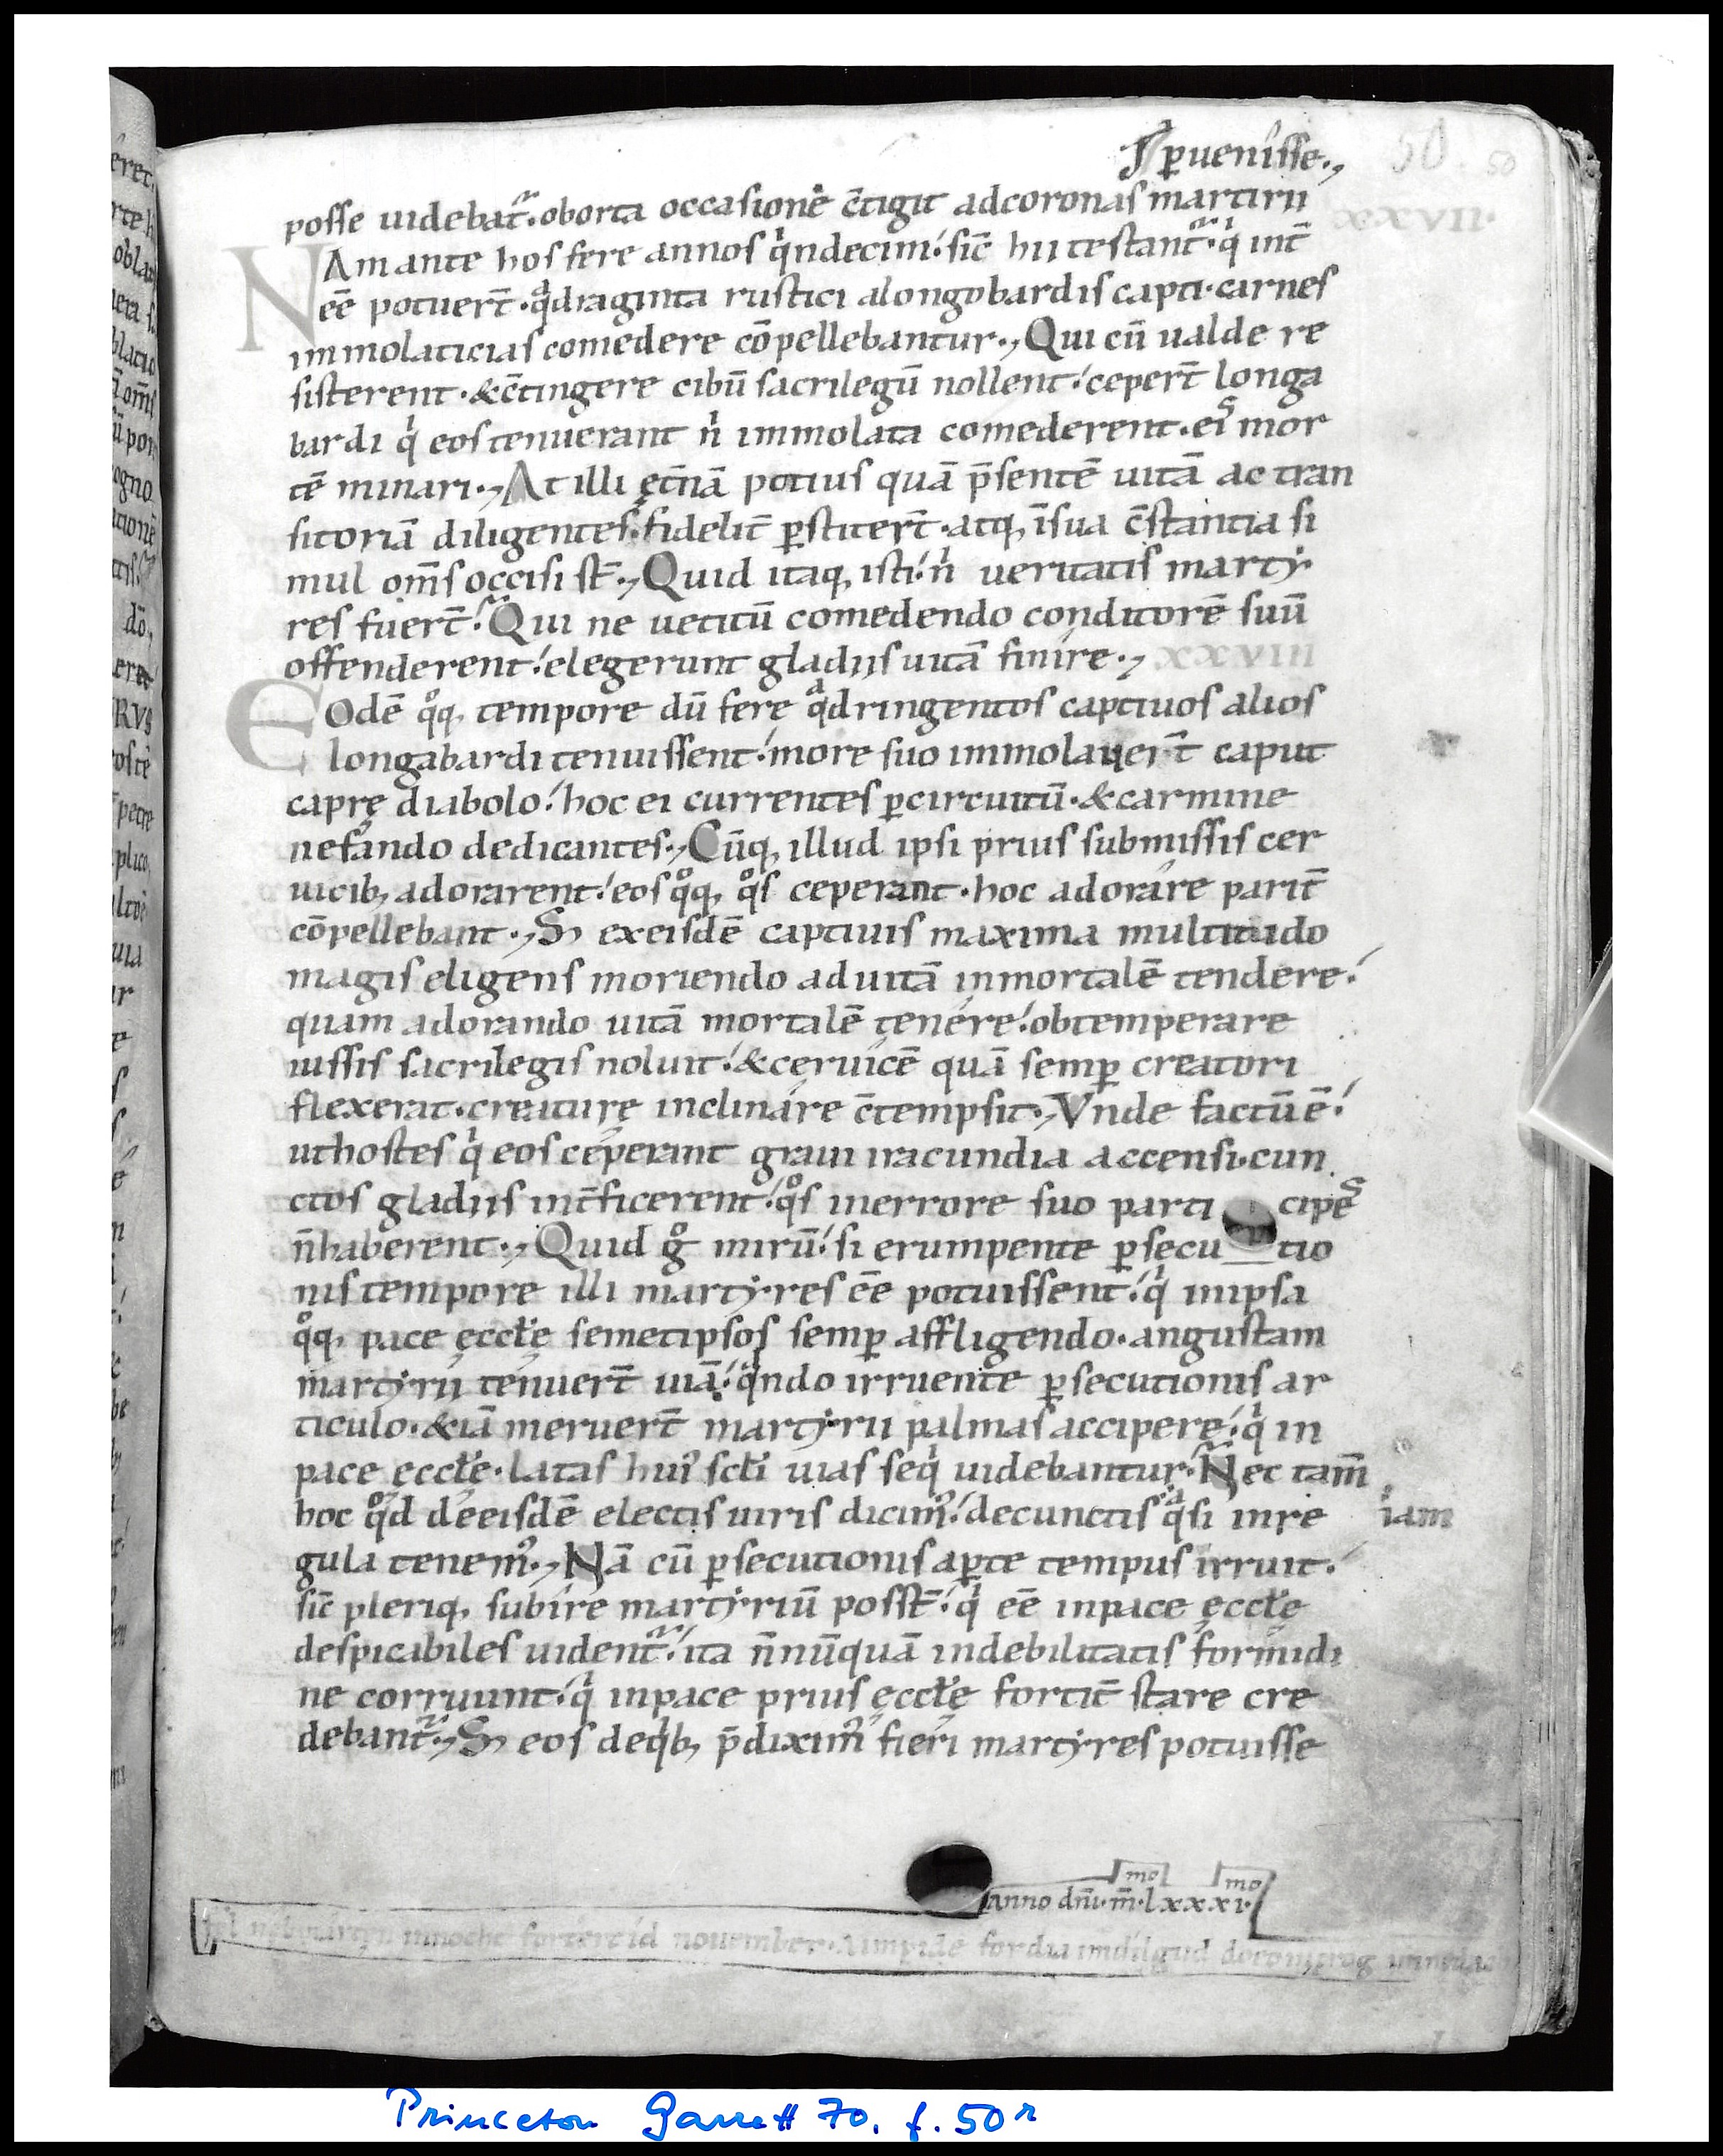 ꝑuenisse.,
50. 50
posse uidebat᷑. oborta occasione c̄tigit ad coronas martirii
XXVII.
NAm ante hos fere annos qͥndecim. sic̄ hii testant᷑. qͥ int̄
eē potuer̄t. qᷓdraginta rustici alongobardis capti. carnes
immolaticias comedere cōpellebantur., Qui cū ualde re
sisterent. & c̄tingere cibū sacrilegū nollent. ceper̄t longa
bardi qͥ eos tenuerant nͥ immolata comederent. eis mor
tē minari., At illi ęt̄nā potius quā p̄sentē uitā ac tran
sitoriā diligentes. fidelit̄ ꝑstiter̄t. atq, īsua c̄stantia si
mul om̄s occisi st̄., Quid itaq, isti. nͥ ueritatis marty
res fuer̄t. Qui ne uetitū comedendo conditorē suū
offenderent. elegerunt gladiis uitā finire., XXVIII
EOdē qͦq, tempore dū fere qᷓdringentos captiuos alios
longabardi tenuissent. more suo immolauer̄t caput
caprę diabolo. hoc ei currentes ꝑcircuitū. & carmine
nefando dedicantes., Cūq, illud ipsi prius submissis cer
uicib, adorarent. eos qͦq, qͦs ceperant. hoc adorare parit̄
cōpellebant., S; exeisdē captiuis maxima multitudo
magis eligens moriendo ad uitā inmortalē tendere.
quam adorando uitā mortalē tenére. obtemperare
iussis sacrilegis noluit. & ceruicē quā semꝑ creatori
flexerat. creaturę inclináre c̄tempsit., Vnde factū ē.
ut hostes qͥ eos céperant graui iracundia accensi. cun
ctos gladiis int̄ficerent. qͦs inerrore suo parti cipes
n̄ haberent., Quid gͦ mirū. si erumpente ꝑsecu tio
nis tempore illi martyres eē potuissent. qͥ inipsa
qͦq, pace ęccłę semetipsos semꝑ affligendo. angustam
martyrii tenuer̄t uiā. qͣndo irruente ꝑsecutionis ar
ticulo. & iā meruer̄t martyrii palmas accipere. qͥ in
pace ęccłę. latas huiꝰ scłi uias seqͥ uidebantur. Nec tam̄
hoc qͦd deeisdē electis uiris dicimꝰ. decunctis qᷓsi inre iam
gula tenemꝰ., Nā cū ꝑsecutionis aꝑte tempus irruit.
sic̄ pleriq, subire martyriū posst̄. qͥ eē inpace ęccłę
despicabiles uident᷑. ita n̄nūquā indebilitatis formidi
ne corruunt. qͥ inpace prius ęccłę fortit̄ stare cre
debant᷑., S; eos deqͥb, p̄diximꝰ fieri martyres potuisse
mo mo
anno dn̄i. m̄. lxxxi.
Princeton Garrett 70, f. 50r